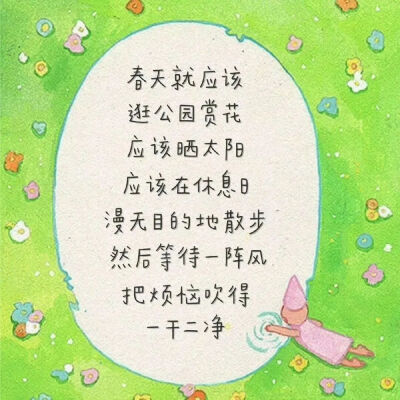 春天就应该
逛公园赏花
应该晒太阳
应该在休息日
漫无目的地散步
然后等待一阵风
把烦恼吹得
一干二净